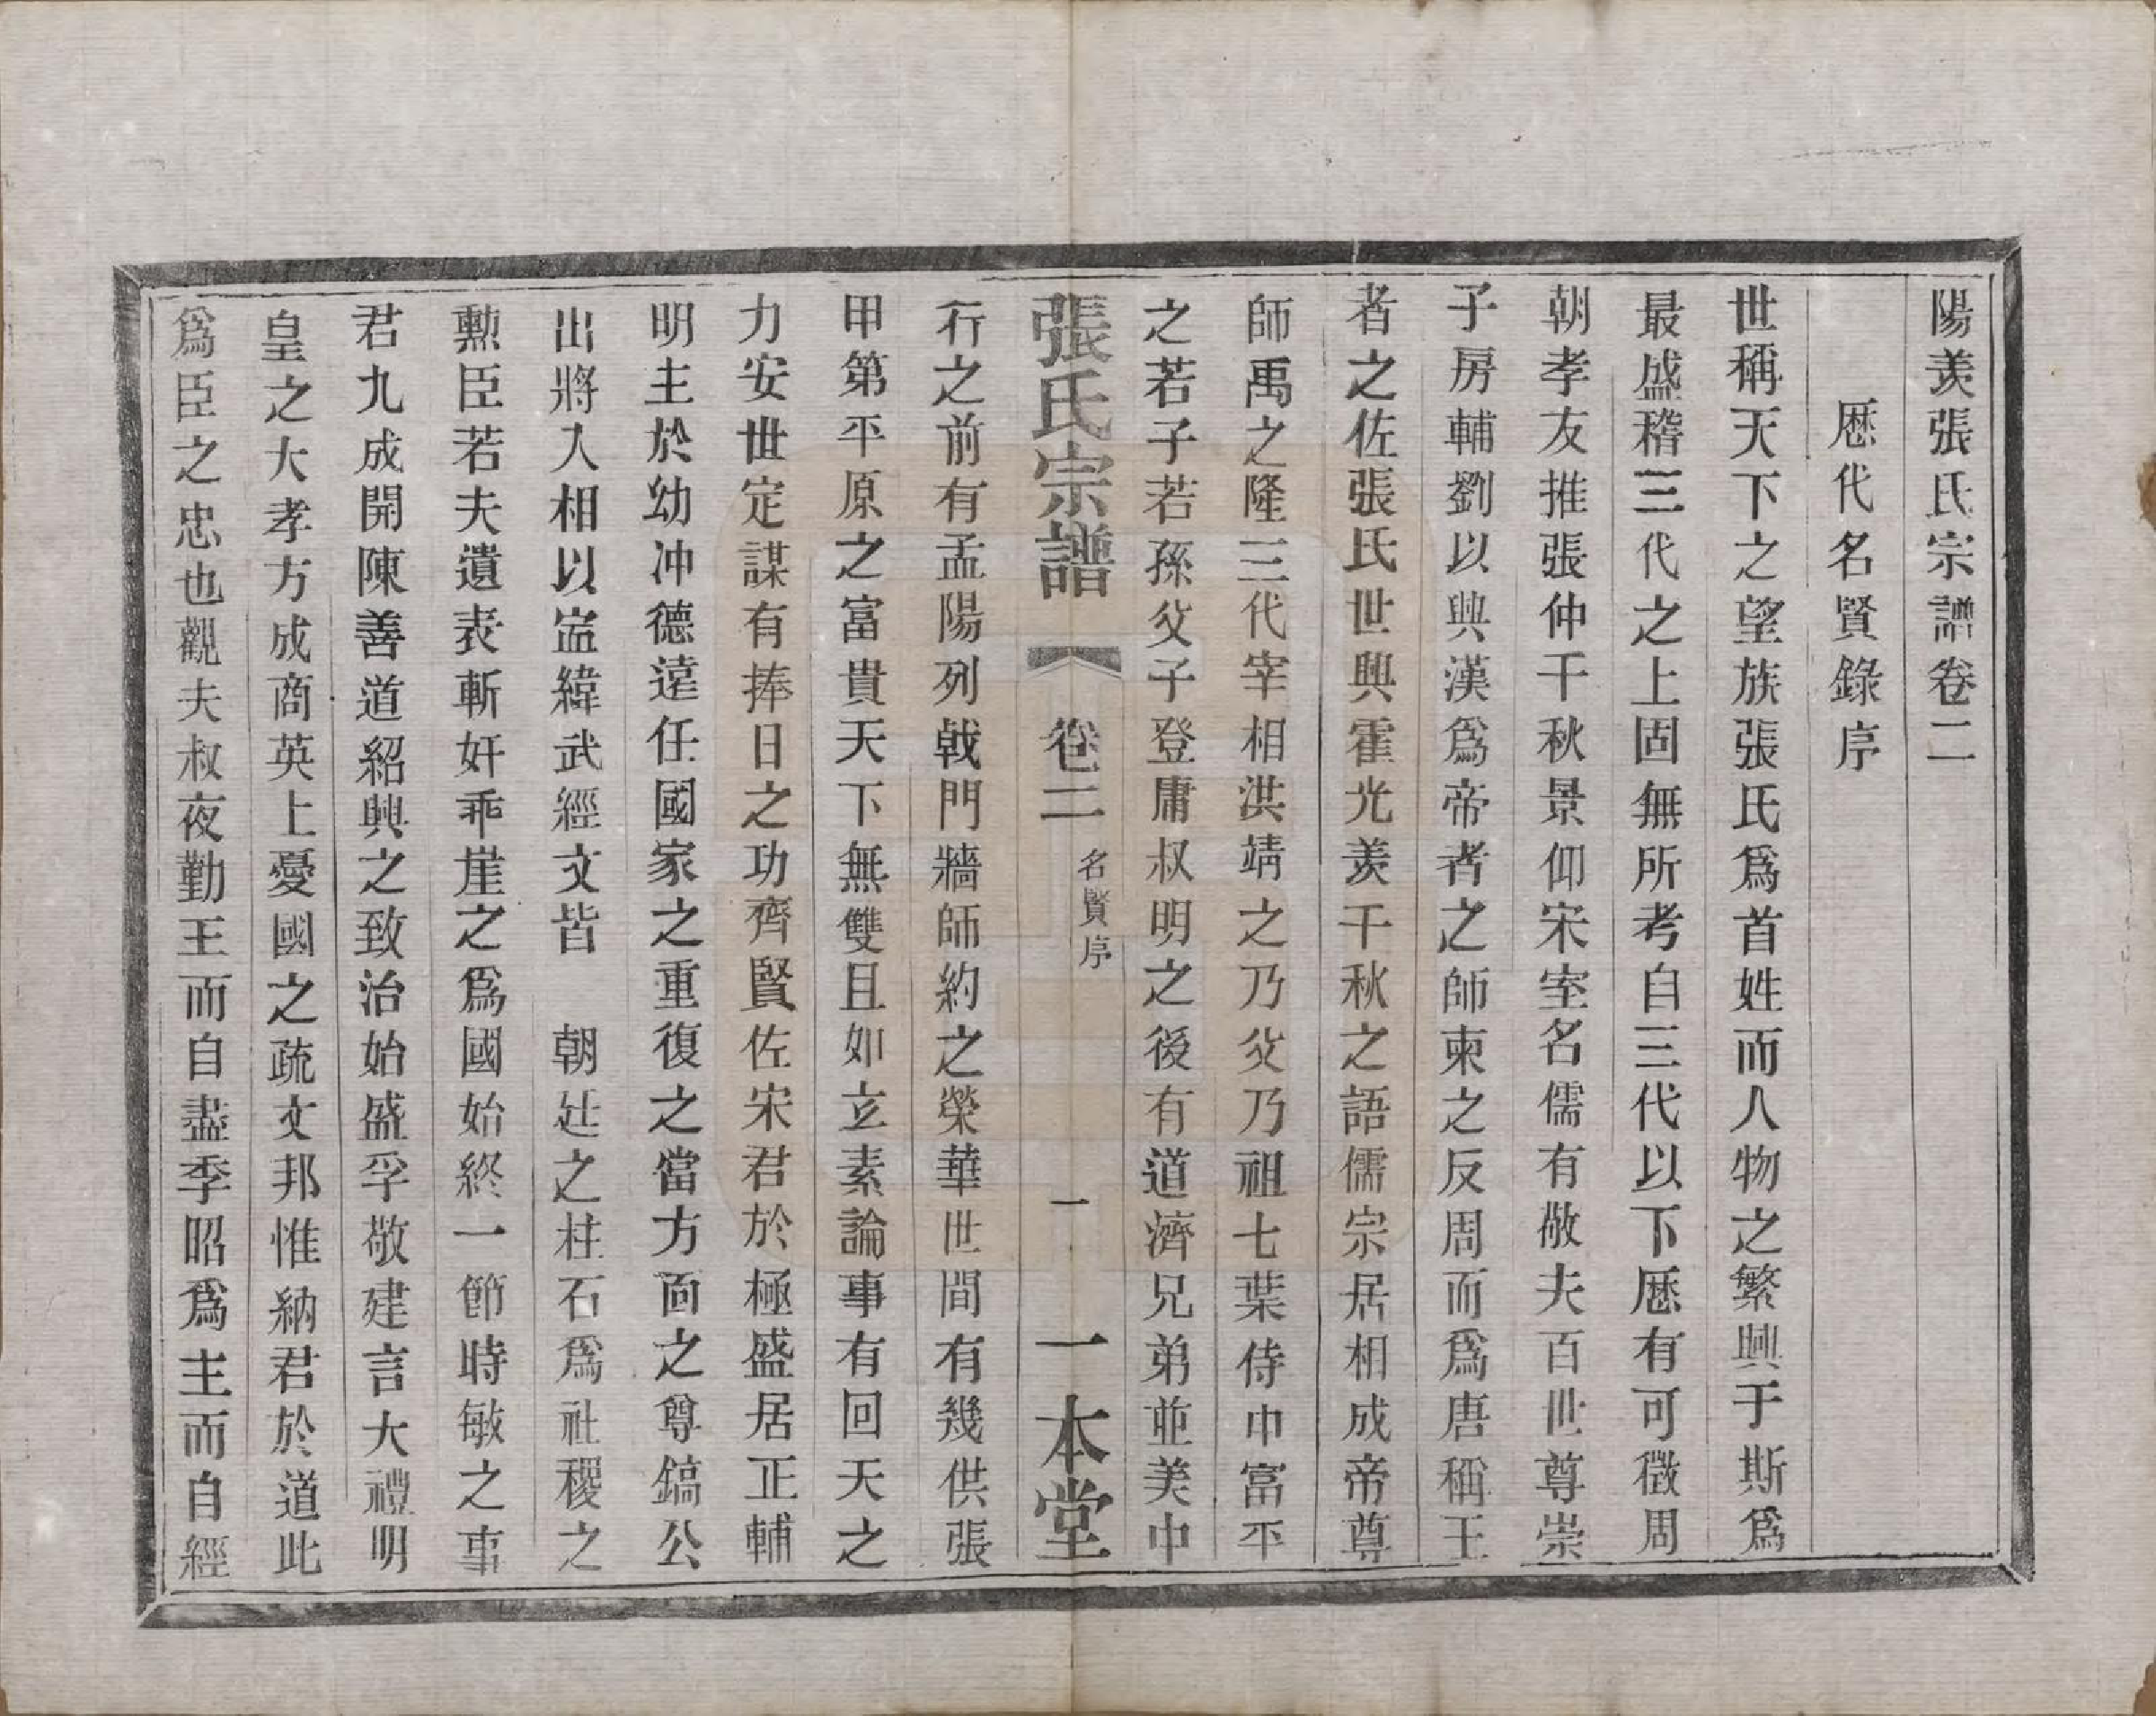 陽羨張氏宗譜卷二
歷代名賢錄序
世稱天下之望族張氏爲首姓而人物之繁興于斯爲
最盛稽三代之上固無所考自三代以下歷有可徵周
朝孝友推張仲千秋景仰宋室名儒有敬夫百世尊崇
子房輔劉以興漢爲帝者之師柬之反周而爲唐稱王
者之佐張氏世興霍光羨千秋之語儒宗居相成帝尊
師禹之隆三代宰相洪靖之乃父乃祖七葉侍中富平
之若子若孫父子登庸叔明之後有道濟兄弟並美中
張氏宗譜 卷二 名賢序 一 一本堂
行之前有孟陽列戟門牆師約之榮華世間有幾供張
甲第平原之富貴天下無雙且如立素論事有回天之
力安世定謀有捧日之功齊賢佐宋君於極盛居正輔
明主於幼冲德遠任國家之重復之當方面之尊鎬公
出將入相以嵓緯武經文皆 朝廷之柱石爲社稷之
勲臣若夫遺表斬奸乖崖之爲國始終一節時敏之事
君九成開陳善道紹興之致治始盛孚敬建言大禮明
皇之大孝方成商英上憂國之疏文邦惟納君於道此
爲臣之忠也觀夫叔夜勤王而自盡季昭爲主而自經